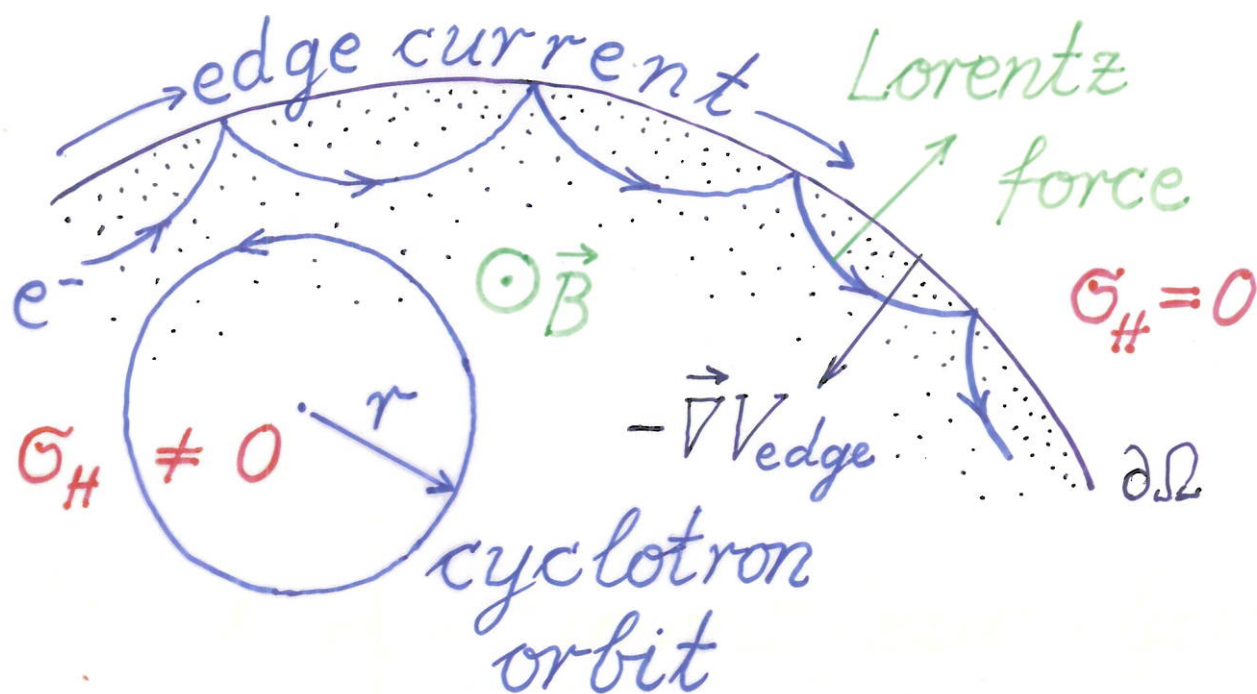 edge current
Lorentz
force
e⁻
⊙ B⃗
σ_H = 0
r
-∇⃗V_edge
σ_H ≠ 0
∂Ω
cyclotron
orbit